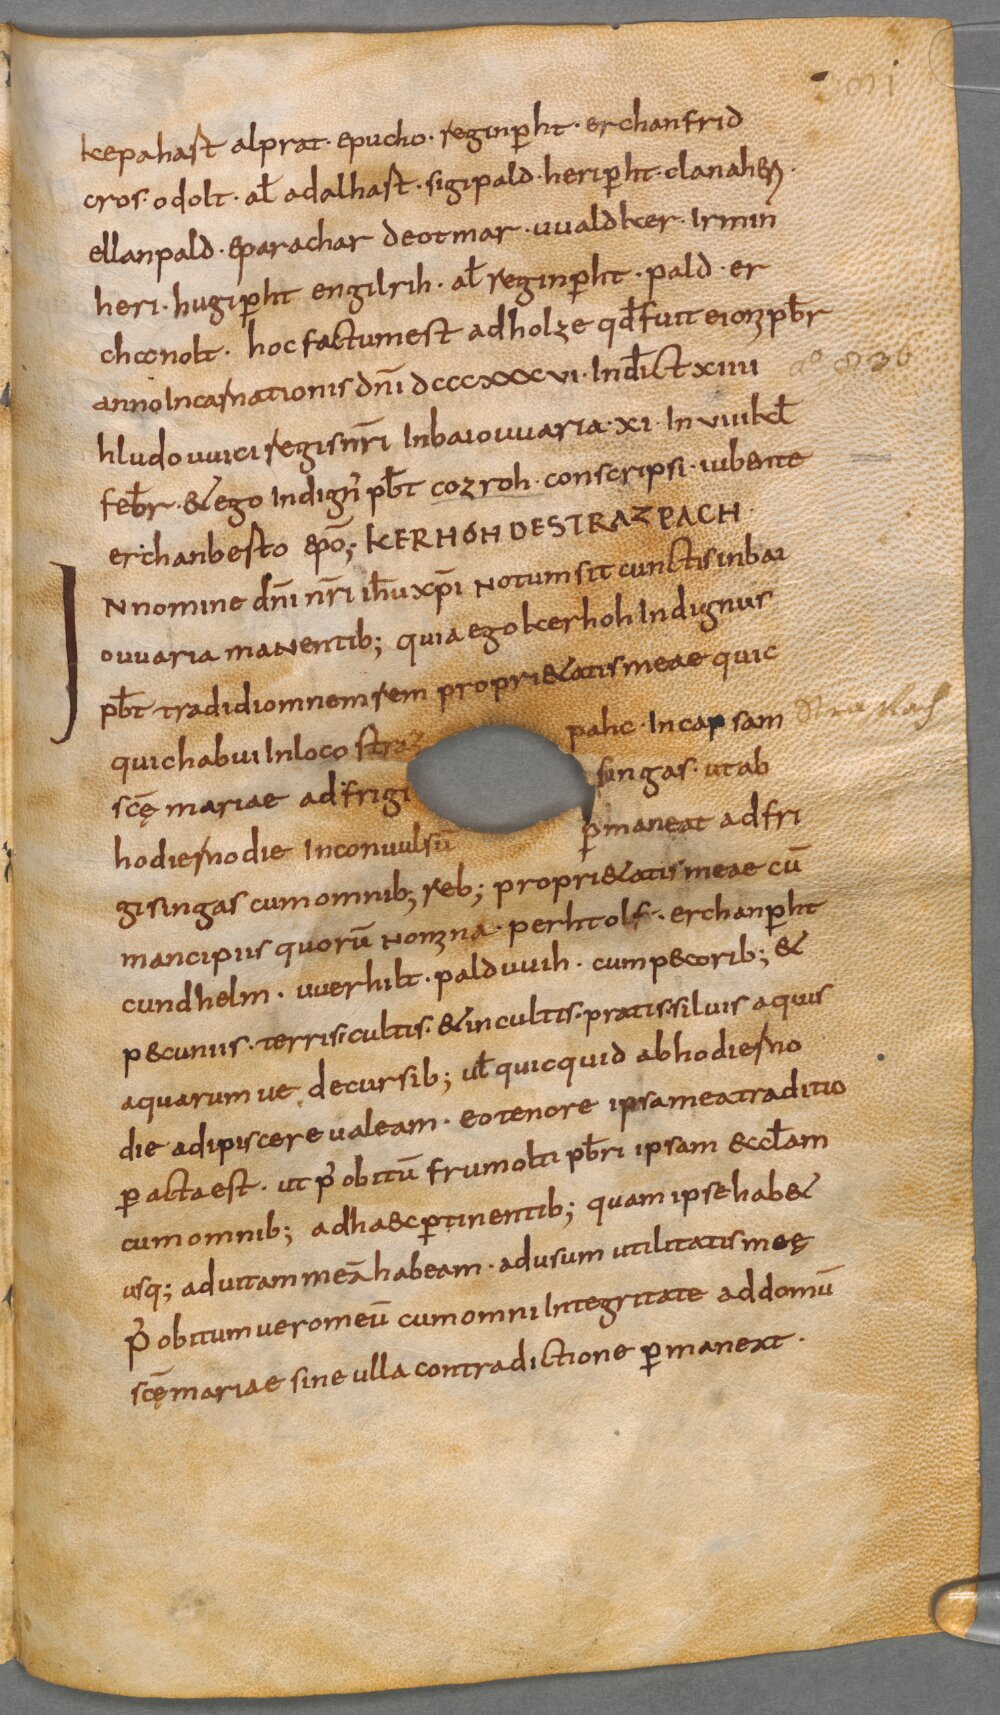 kepahast alprat · epucho · reginꝑht · erchanfrid
cros · odolt · al̄ adalhast · sigipald · heriꝑht · clanah&
ellanpald · eparachar deotmar · uualdker · Irmin
heri · hugiꝑht engilrih · al̄ reginꝑht · pald · er
chconolt · hoc factum est adholze qd̄ fuit pb̄r
anno Incarnationis dn̄i dcccxxxvi · Ind̄ict xiiii
a° 836
hludouuici regis nr̄i Inbaiouuaria · xi · In viii kl̄
feb̄r · & ego Indign̄ pb̄t cozroh · conscripsi · iub&nte
erchanbesto ep̄o; KERHOH DE STRAZPACH
IN nomine dn̄i nr̄i ih̄u xp̄i Notum sit cunctis inbai
ouuaria maNentib; quia ego kerhoh Indignus
pb̄t tradidi omnem rem propri&atis meae quic
quic habui Inloco straz pahc · Incapsam
Strasbach
scę̄ mariae ad frigi singas · ut ab
hodierno die Inconuulsū ꝑmaneat adfri
gisingas cum omnib; reb; propri&atis meae cū
mancipiis quorū Nomna · perhtolf · erchanꝑht
cundhelm · uuerhilt · palduuih · cum p&corib; &
p&cuniis · terris · cultis · & incultis · pratis · siluis aquis
aquarumue decursib; ul̄ quicquid ab hodierno
die adipiscere ualeam · eo tenore ipsa mea traditio
ꝑacta est · ut p̄ obitū frumolti pb̄ri ipsam &ccl̄am
cum omnib; ad ha&c ꝑtinentib; quam ipse hab&
usq; ad uitam meā habeam · ad usum utilitatis meę
p̄ obitum uero meū cum omni Integritate ad domū
scę̄ mariae sine ulla contradictione ꝑmanext ·